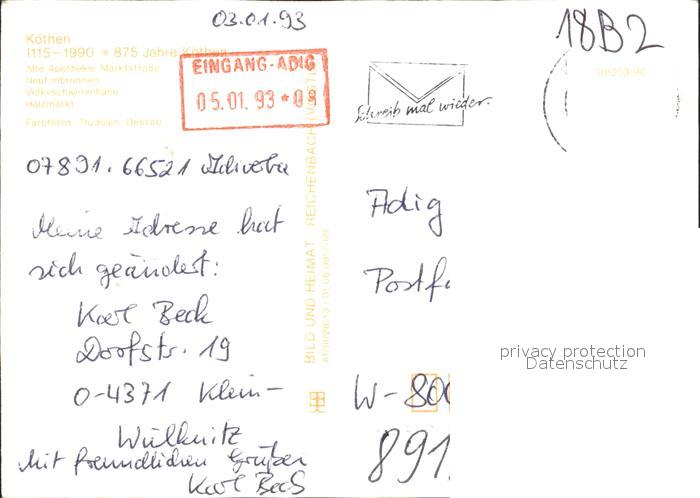 03.01.93
18B2
Köthen
1115-1990 * 875 Jahre Köthen
Alte Apotheke, Marktstraße
Neptunbrunnen
Volksschwimmhalle
Holzmarkt
Farbfotos: Rudolph, Dessau
EINGANG-ADIG
05.01.93 * 08
Schreib mal wieder.
07891.66521
Meine Adresse hat
sich geändert:
Karl Beck
Dorfstr. 19
O-4371 Klein-
Wülknitz
Mit freundlichen Grüßen
Karl Beck
BILD UND HEIMAT REICHENBACH
Adig
Postf
W-800
891
privacy protection
Datenschutz